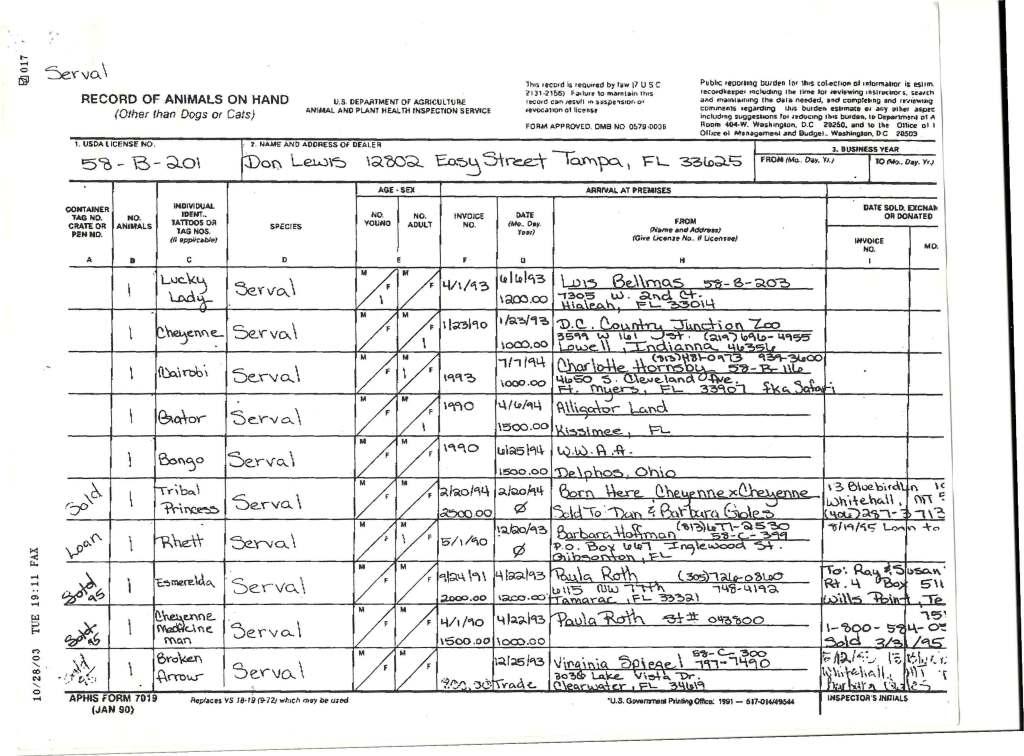 017
Serval
RECORD OF ANIMALS ON HAND
(Other than Dogs or Cats)
U.S. DEPARTMENT OF AGRICULTURE
ANIMAL AND PLANT HEALTH INSPECTION SERVICE
This record is required by law (7 U S C
2131-2156) Failure to maintain this
record can result in suspension or
revocation of license
FORM APPROVED. OMB NO 0579-0036
Public reporting burden for this collection of information is estim.
recordkeeper including the time for reviewing instructions, search
and maintaining the data needed, and completing and reviewing
comments regarding this burden estimate or any other aspec
including suggestions for reducing this burden, to Department of A
Room 404-W. Washington, D.C 20250, and to the Office of I
Office of Management and Budget, Washington, D C 20503
1. USDA LICENSE NO.
58-B-201
2. NAME AND ADDRESS OF DEALER
Don Lewis 12802 Easy Street Tampa, FL 33625
3. BUSINESS YEAR
FROM (Mo., Day, Yr.)
TO (Mo., Day, Yr.)
CONTAINER TAG NO. CRATE OR PEN NO.
NO. ANIMALS
INDIVIDUAL IDENT., TATTOOS OR TAG NOS. (If applicable)
SPECIES
AGE - SEX
NO. YOUNG
NO. ADULT
ARRIVAL AT PREMISES
INVOICE NO.
DATE (Mo., Day, Year)
FROM
(Name and Address)
(Give License No., If Licensee)
DATE SOLD, EXCHAN
OR DONATED
INVOICE NO.
MO.
A B C D E F G H I
1 Lucky Lady Serval M F 1 M F 4/1/93 6/6/93 1200.00 Luis Bellmas 58-B-203
7305 W. 2nd Ct.
Hialeah, FL 33014
1 Cheyenne Serval M F M F 1 1/23/90 1/23/93 1000.00 D.C. Country Junction Zoo
3599 W 161 St. (219) 696-4955
Lowell, Indianna 46356
1 Nairobi Serval M F M 1 F 1993 7/7/94 1000.00 (813)481-0973 939-3600
Charlotte Hornsby 58-B-116
4650 S. Cleveland Ave.
Ft. Myers, FL 33907 fka Safari
1 Gator Serval M F M F 1 1990 4/6/94 1500.00 Alligator Land
Kissimee, FL
1 Bongo Serval M F M F 1990 6/25/94 1500.00 W.W.A.A.
Delphos, Ohio
Sold 1 Tribal Princess Serval M F M F 2/20/94 2500.00 2/20/94 Ø Born Here Cheyenne x Cheyenne
Sold To: Dan & Barbara Gioles
13 Bluebird Ln
Whitehall, MT
(406) 287-3713
Loan 1 Rhett Serval M F M 1 F 5/1/90 12/20/93 Ø Barbara Hoffman (813)671-2530
58-C-399
P.O. Box 667 Inglewood St.
Gibsonton, FL
8/19/95 Loan to
Sold 95 1 Esmerelda Serval M F M F 9/24/91 2000.00 4/22/93 1200.00 Paula Roth (305)726-0860
6115 NW 77th 748-4192
Tamarac, FL 33321
To: Ray & Susan
Rt. 4 Box 511
Wills Point, Te
75
Sold 95 1 Cheyenne Medicine man Serval M F M F 4/1/90 1500.00 4/22/93 1000.00 Paula Roth St # 043800
1-800-584-05
Sold 3/31/95
Sold 1 Broken Arrow Serval M F M F 12/25/93 Trade Virginia Spiegel 58-C-300
797-7490
3036 Lake Vista Dr.
Clearwater, FL 34619
Whitehall,
Barbara
APHIS FORM 7019
(JAN 90)
Replaces VS 18-19 (9-72) which may be used
*U.S. Government Printing Office: 1991 — 517-014/49544
INSPECTOR'S INITIALS
10/28/03 TUE 19:11 FAX